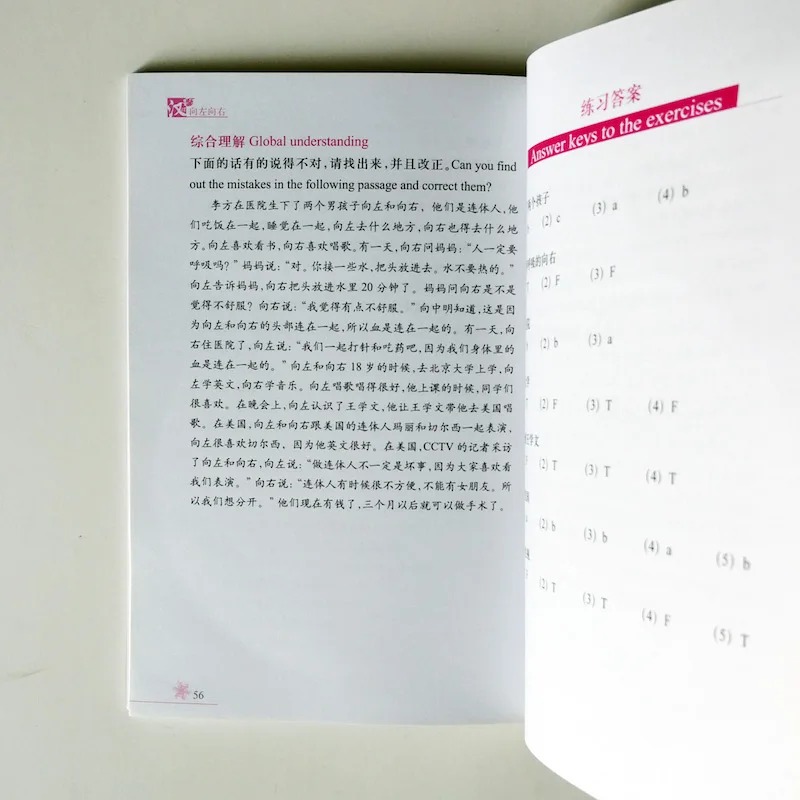 汉 向左向右
综合理解 Global understanding
下面的话有的说得不对，请找出来，并且改正。Can you find
out the mistakes in the following passage and correct them?
李方在医院生下了两个男孩子向左和向右，他们是连体人，他
们吃饭在一起，睡觉在一起，向左去什么地方，向右也得去什么地
方。向左喜欢看书，向右喜欢唱歌。有一天，向右问妈妈：“人一定要
呼吸吗？”妈妈说：“对。你接一些水，把头放进去。水不要热的。”
向左告诉妈妈，向右把头放进水里 20 分钟了。妈妈问向右是不是
觉得不舒服？向右说：“我觉得有点不舒服。”向中明知道，这是因
为向左和向右的头部连在一起，所以血是连在一起的。有一天，向
右住医院了，向左说：“我们一起打针和吃药吧，因为我们身体里的
血是连在一起的。”向左和向右 18 岁的时候，去北京大学上学，向
左学英文，向右学音乐。向左唱歌唱得很好，他上课的时候，同学们
很喜欢。在晚会上，向左认识了王学文，他让王学文带他去美国唱
歌。在美国，向左和向右跟美国的连体人玛丽和切尔西一起表演，
向左很喜欢切尔西，因为他英文很好。在美国，CCTV 的记者采访
了向左和向右，向左说：“做连体人不一定是坏事，因为大家喜欢看
我们表演。”向右说：“连体人有时候很不方便，不能有女朋友。所
以我们想分开。”他们现在有钱了，三个月以后就可以做手术了。
56
练习答案
Answer keys to the exercises
个孩子
(2) c (3) a (4) b
的向右
(2) F (3) F
(2) b (3) a
(2) F (3) T (4) F
学文
(2) T (3) T (4) T
国
(2) b (3) b (4) a (5) b
(2) T (3) T (4) F (5) T